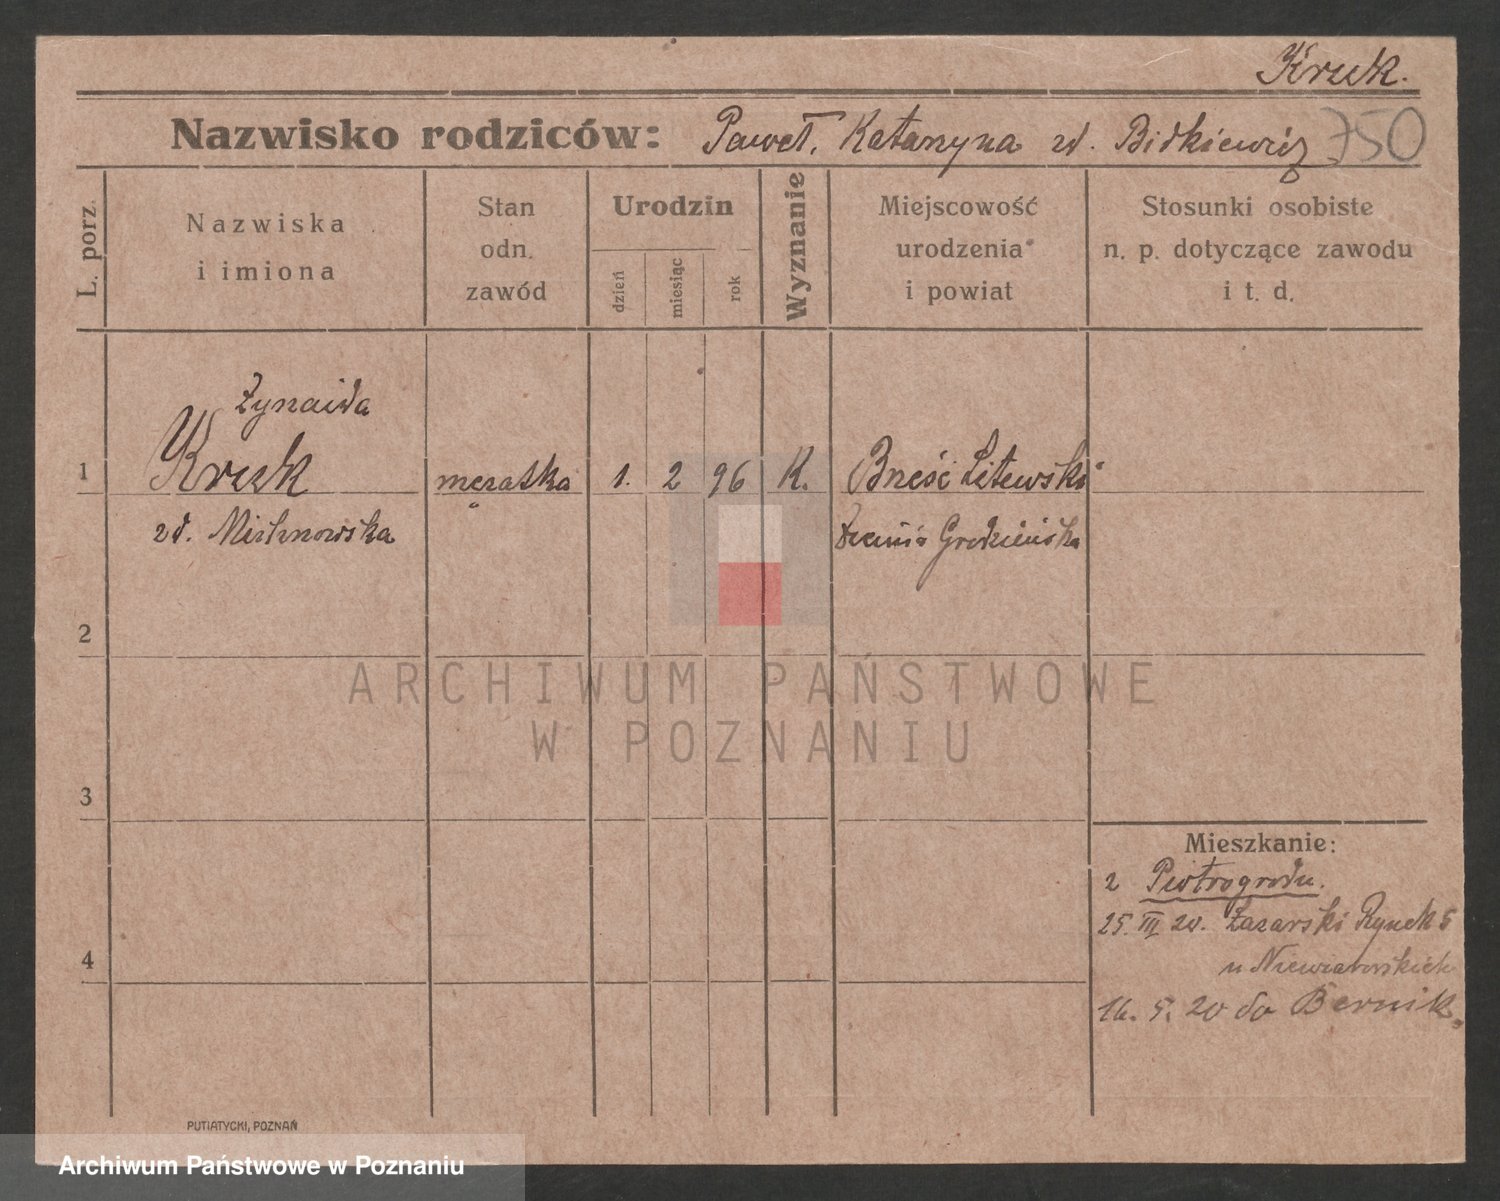 Kruk.
Nazwisko rodziców: Paweł, Katarzyna zd. Bidkiewicz 750
L. porz.
Nazwiska
i imiona
Stan
odn.
zawód
Urodzin
dzień
miesiąc
rok
Wyznanie
Miejscowość
urodzenia
i powiat
Stosunki osobiste
n. p. dotyczące zawodu
i t. d.
Zynaida
1 Kruk mężatka 1. 2 96 K. Brześć Litewski
zd. Michnowska Grodzieńska
2
3
4
ARCHIWUM PAŃSTWOWE
W POZNANIU
Mieszkanie:
z Piotrogrodu.
25. III 20. Łazarski Rynek 5
u Niewiarowskich
16. 5. 20 do Bernik.
PUTIATYCKI, POZNAŃ
Archiwum Państwowe w Poznaniu